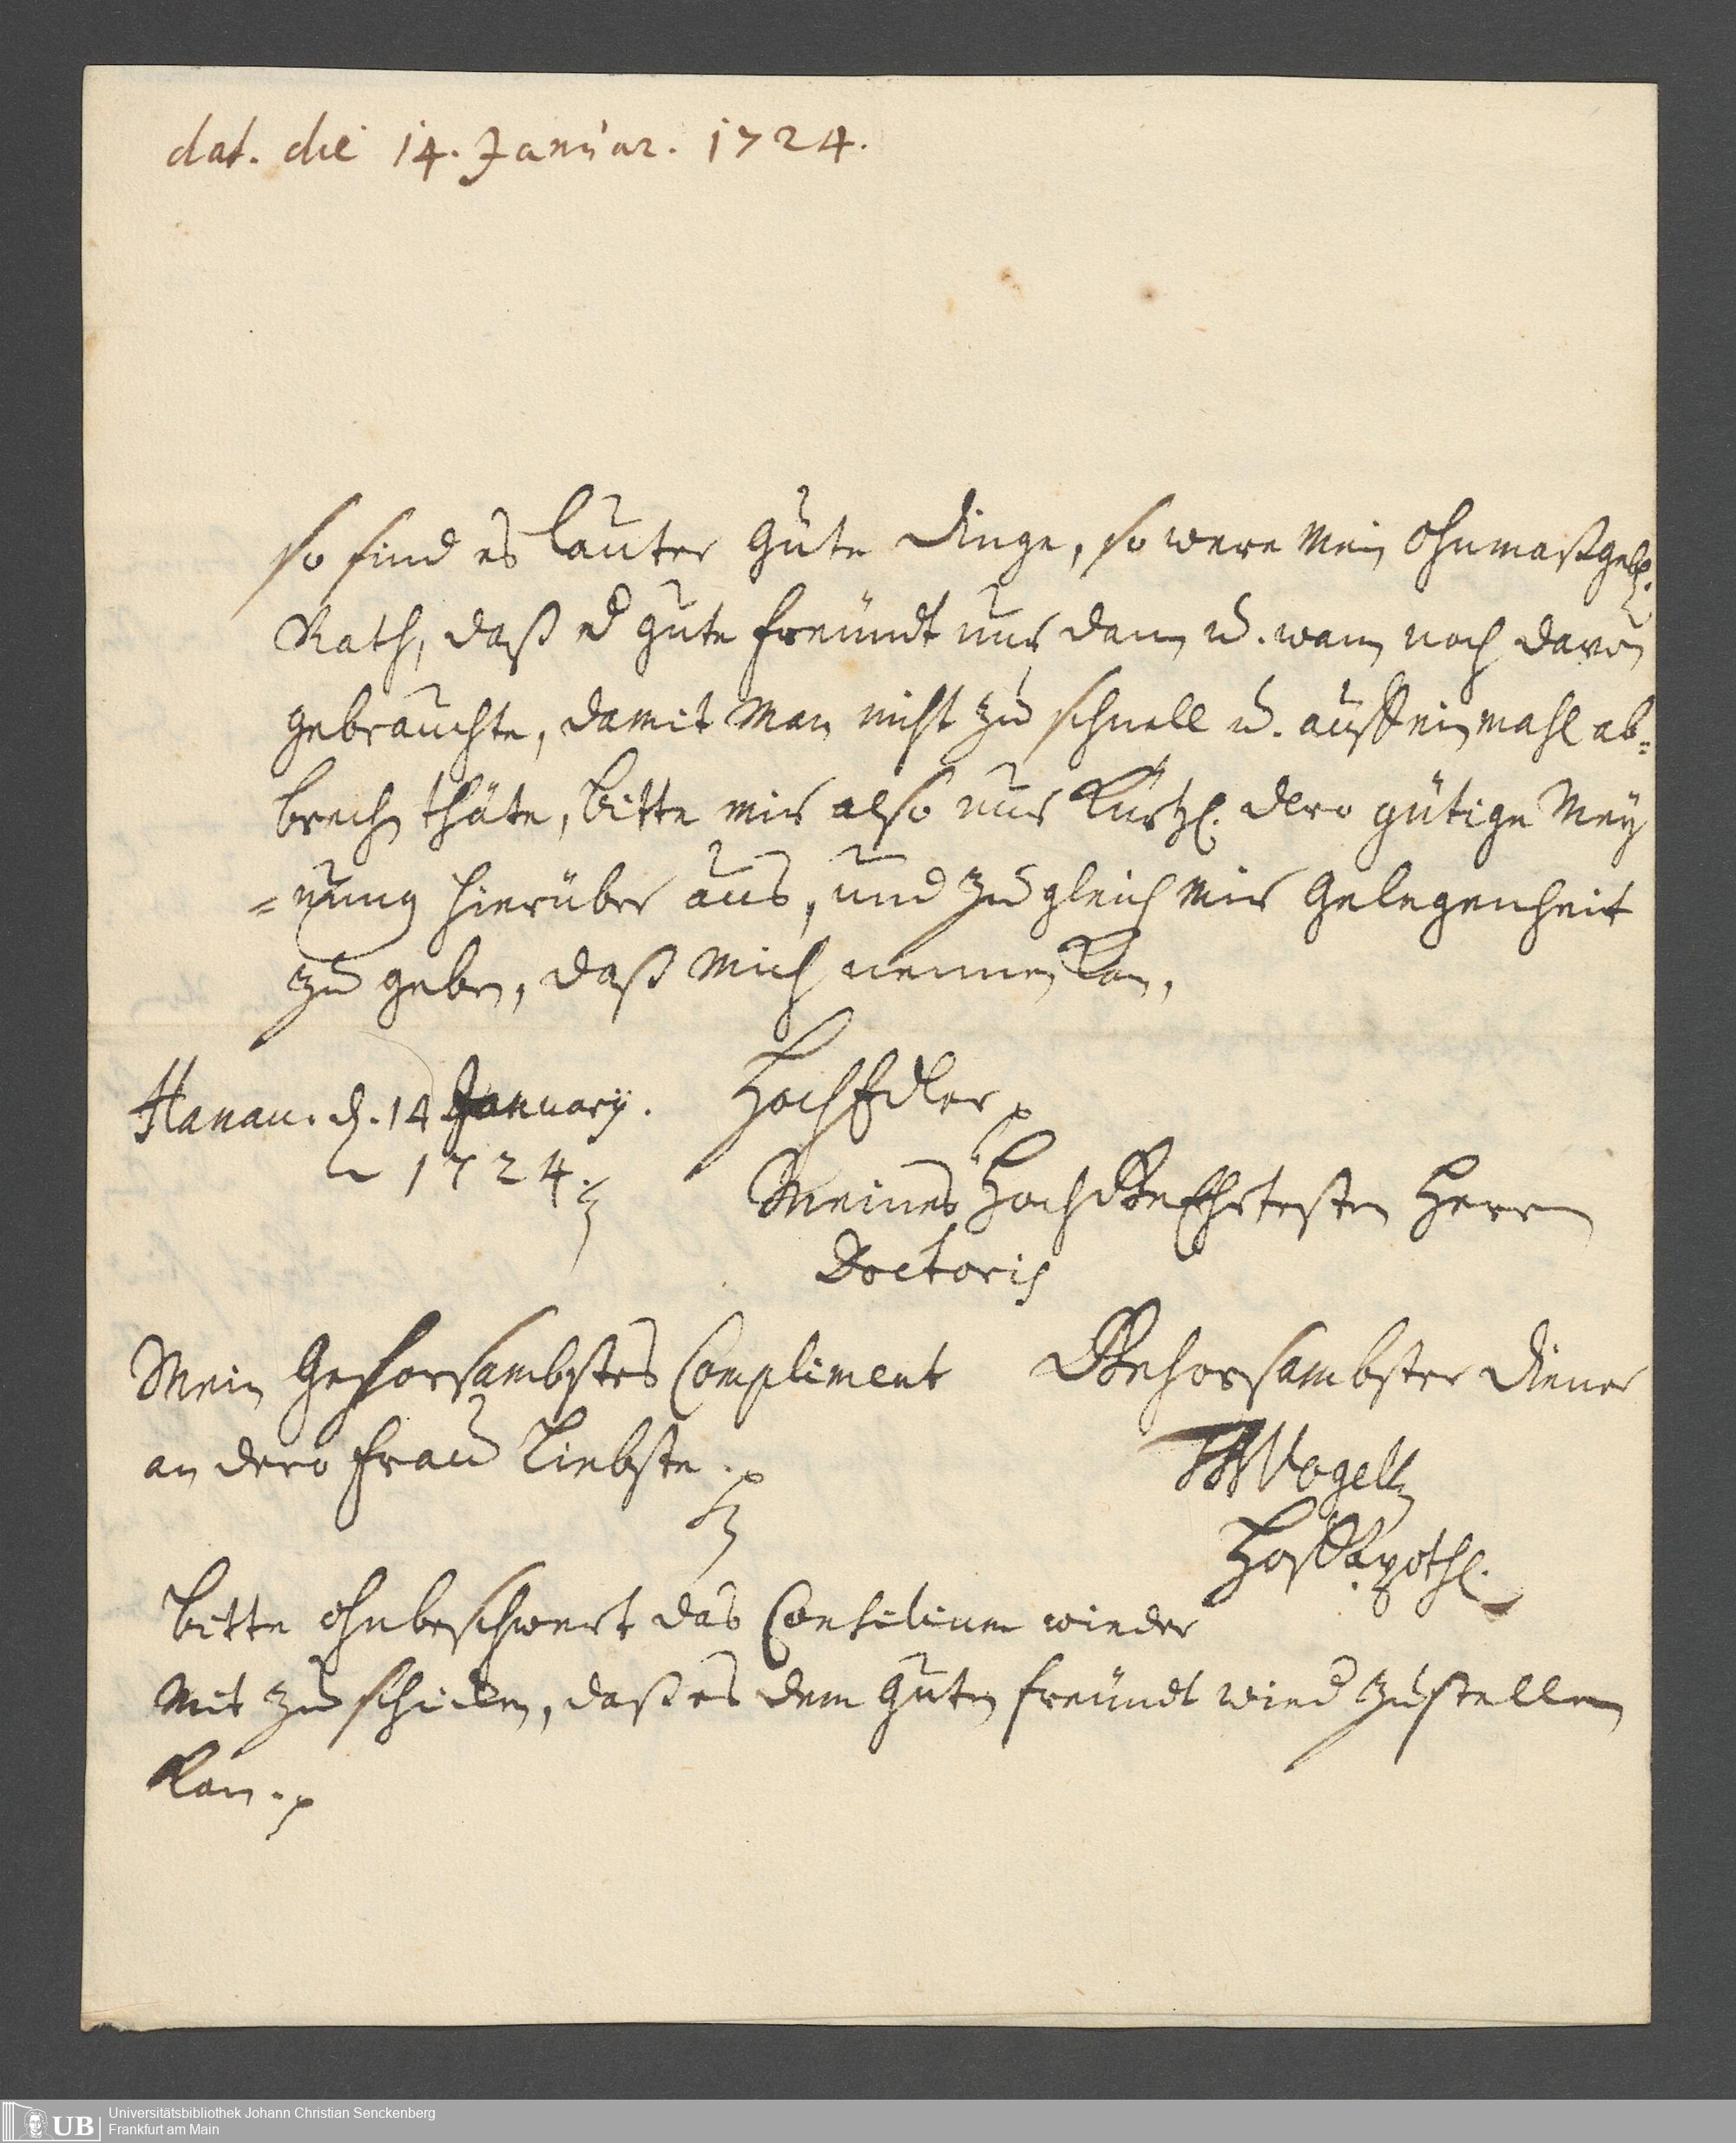 dat. die 14. Januar. 1724.
so sind es lauter gute Dinge, so were Mein ohnmaßgebl.
Rath, daß d gute Freundt nur dann u. wann noch davon
gebrauchte, damit Man nicht zu schnell u. auff ein mahl ab=
brechen thäte, bitte mir also nur Kürtzl. dero gütige Mey
=nung hierüber aus, und zu gleich mir Gelegenheit
zu geben, daß Mich nennen Kan,
Hanau. d. 14 January.
1724.
HochEdler
Meines HochGeEhrtesten Herrn
Doctoris
Mein Gehorsambstes Compliment
an dero Frau Liebste.
Gehorsambster Diener
Vogell
HoffApothl.
bitte ohnbeschwert das Consilium wieder
Mit zu schicken, daß es dem guten Freundt wied zustellen
Kan.
Universitätsbibliothek Johann Christian Senckenberg
Frankfurt am Main
UB